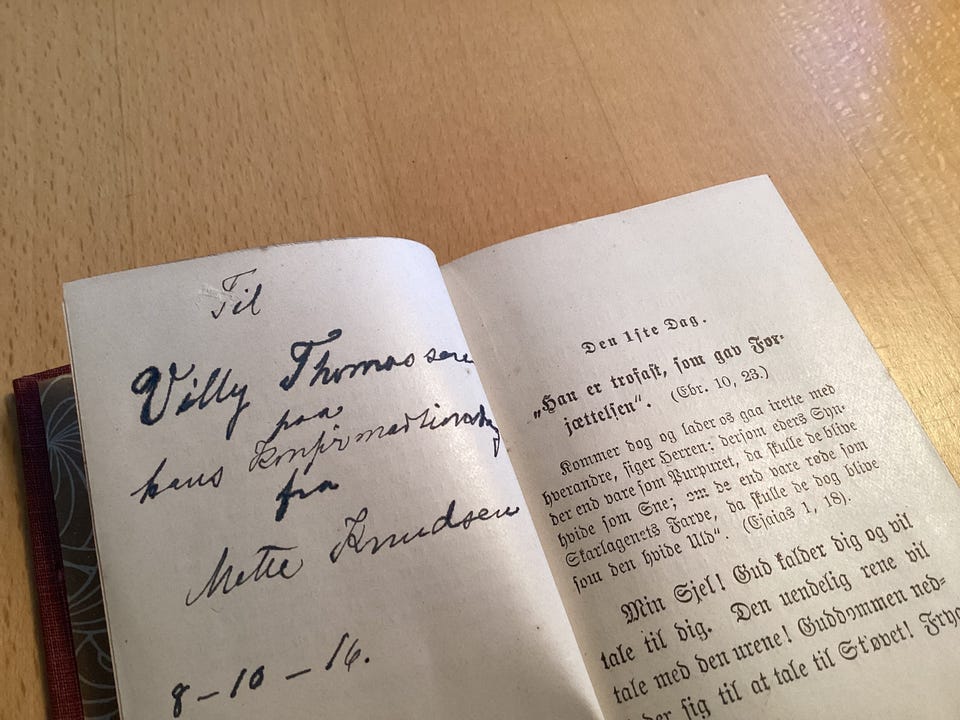 Til
Villy Thomassen
paa
hans Konfirmationsdag
fra
Mette Knudsen
8-10-16.
Den 1ste Dag.
„Han er trofast, som gav For-
jættelsen“. (Ebr. 10, 23.)
Kommer dog og lader os gaa irette med
hverandre, siger Herren; dersom eders Syn-
der end vare som Purpuret, da skulle de blive
hvide som Sne; om de end vare røde som
Skarlagenets Farve, da skulle de dog blive
som den hvide Uld“. (Esaias 1, 18).
Min Sjel! Gud kalder dig og vil
tale til dig. Den uendelig rene vil
tale med den urene! Guddommen ned-
der sig til at tale til Støvet!